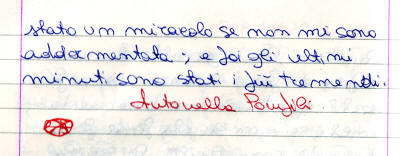 stato un miracolo se non mi sono
addormentata; e poi gli ultimi
minuti sono stati i più tremendi.
Antonella Pompili.